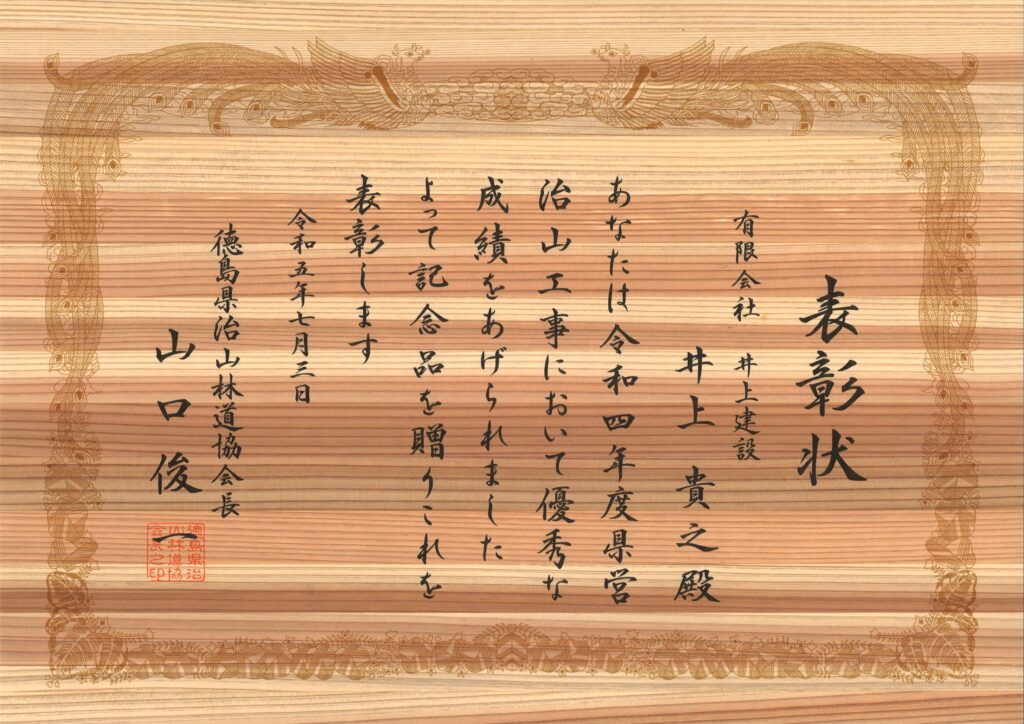 表彰状
有限会社 井上建設
井上 貴之 殿
あなたは令和四年度県営
治山工事において優秀な
成績をあげられました
よって記念品を贈りこれを
表彰します
令和五年七月三日
徳島県治山林道協会長
山口俊一
徳島県治
山林道協
会長之印